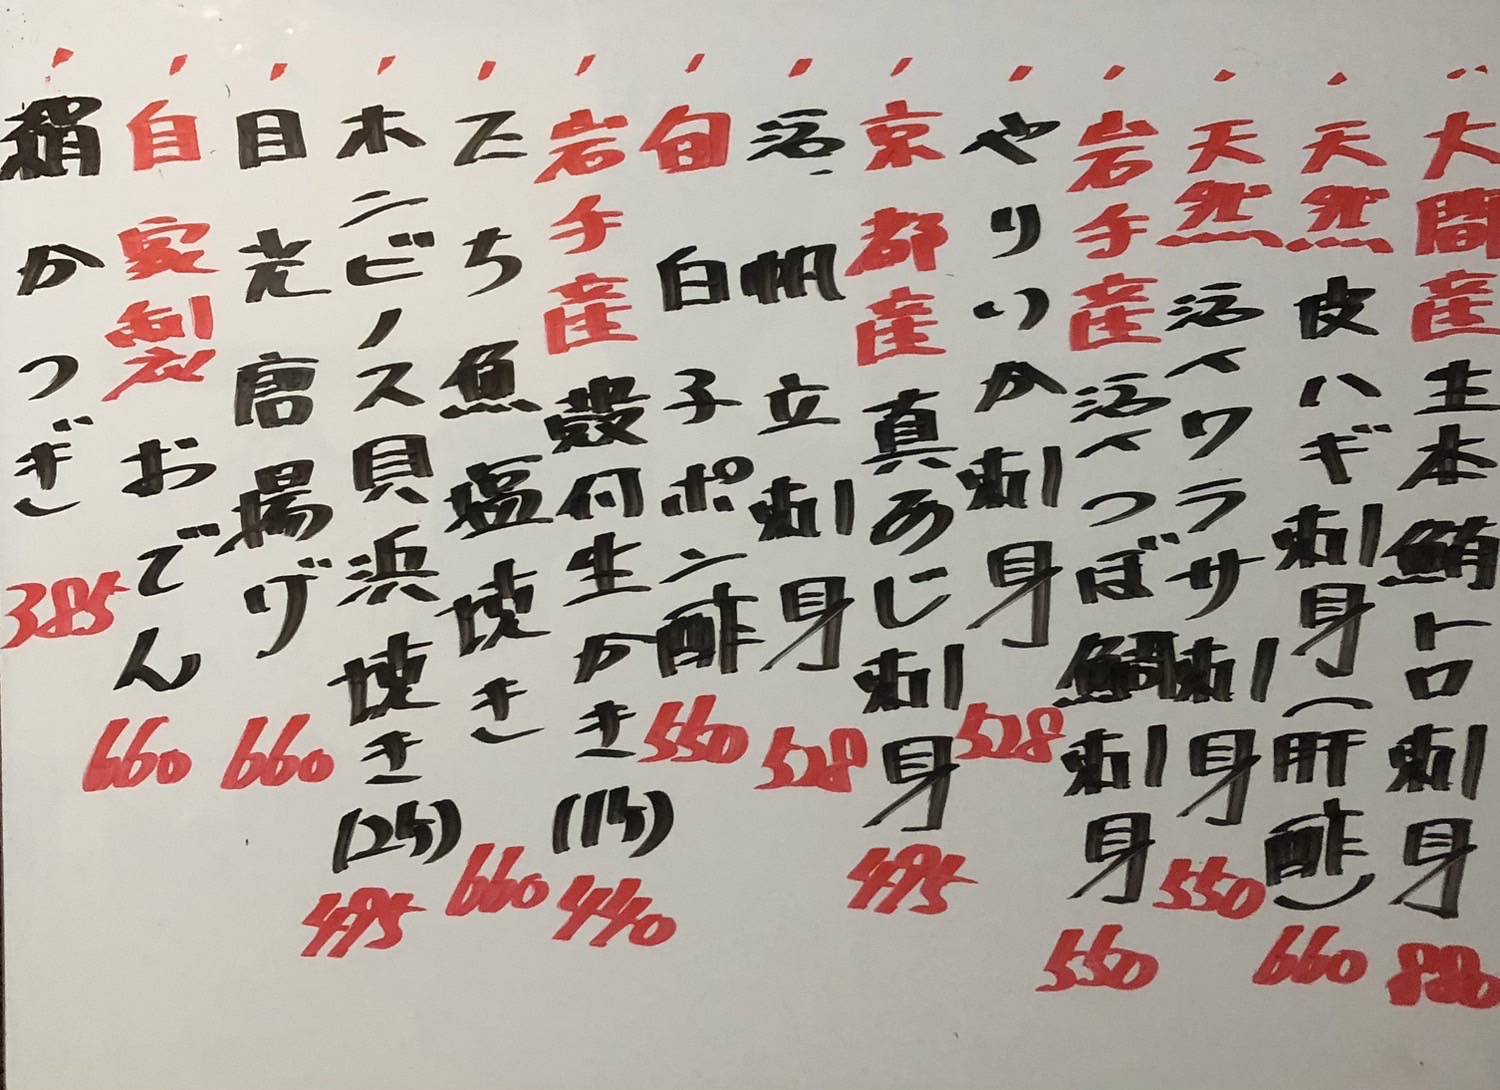 大間産生本鮪トロ刺身 880
天然皮ハギ刺身(肝酢) 660
天然活〆ワラサ刺身 550
岩手産活〆つぼ鯛刺身 550
やりいか刺身 528
京都産真あじ刺身 495
活帆立刺身 528
旬白子ポン酢 550
岩手産殻付生かき(1ケ) 440
たち魚塩焼き 660
ホンビノス貝浜焼き(2ケ) 495
目光唐揚げ 660
自家製おでん 660
絹かつぎ 385